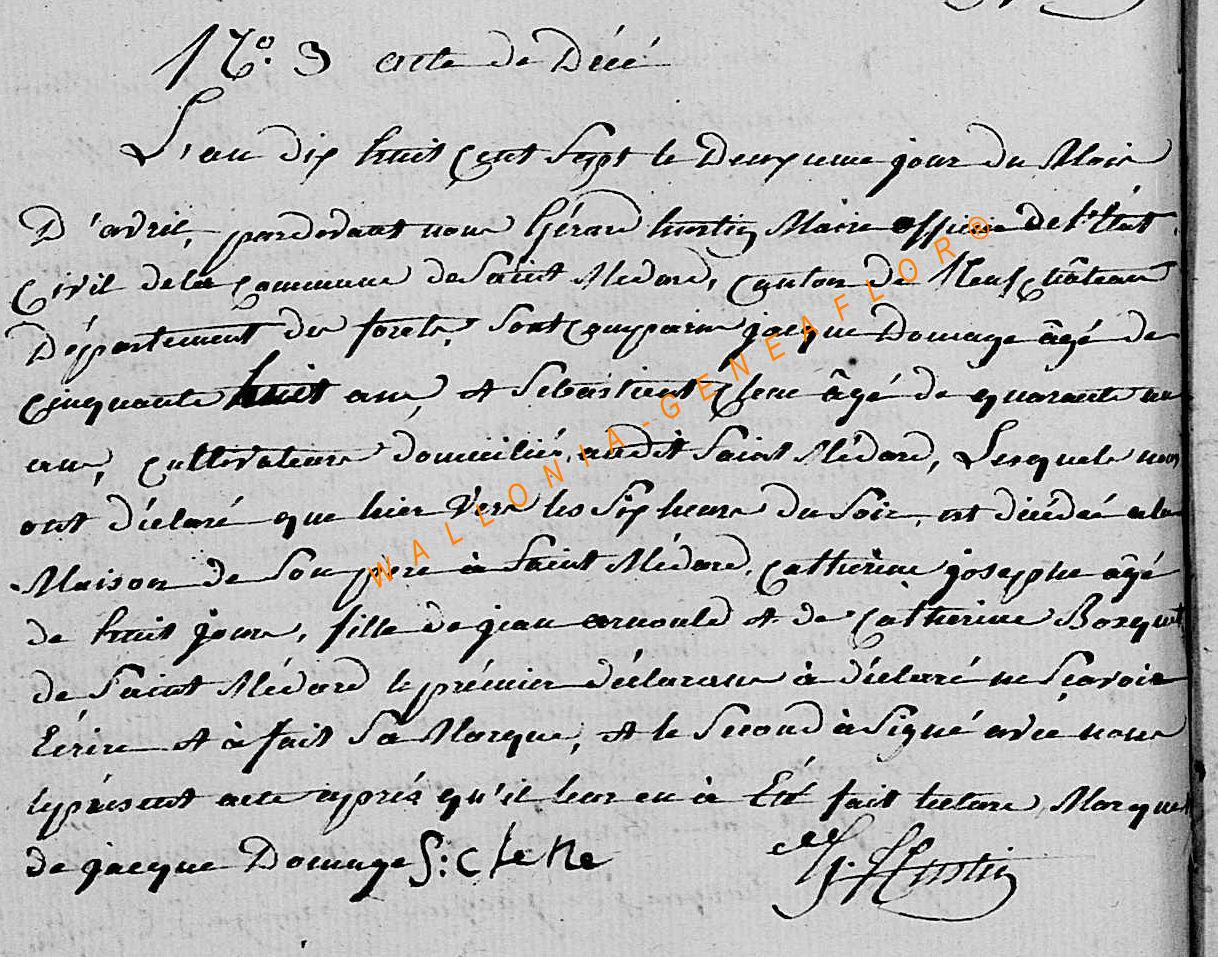 N.º 3 acte de Décé
L'an dix huit cent Sept le Deuxieme jour du Mois
D'avril, pardevant nous Gérard hustin Maire officier de l'Etat
Civil de la Commune de Saint Médard, canton de Neufchâteau
Département des forets, Sont comparus jacque Domage âgé de
cinquante huit ans, et Sebastient Clene âgé de quarante un
ans, cultivateurs domiciliés audit Saint Médard, Lesquels nous
ont déclaré que hier Vers les Six heures du Soir, est décédée a la
Maison de Son pere à Saint Médard, Catherine josephe âgé
de huit jours, fille de jean arnould et de Catherine Bosquet
de Saint Médard le prémier déclarans à déclaré ne Sçavoir
Ecrire et à fait Sa Marque, et le Second à Signé avec nous
le présent acte après qu'il leur en à Eté fait lecture, Marque
de jacque Domage S: cleNe G. Hustin
WALLONIA-GENEAFLOR®